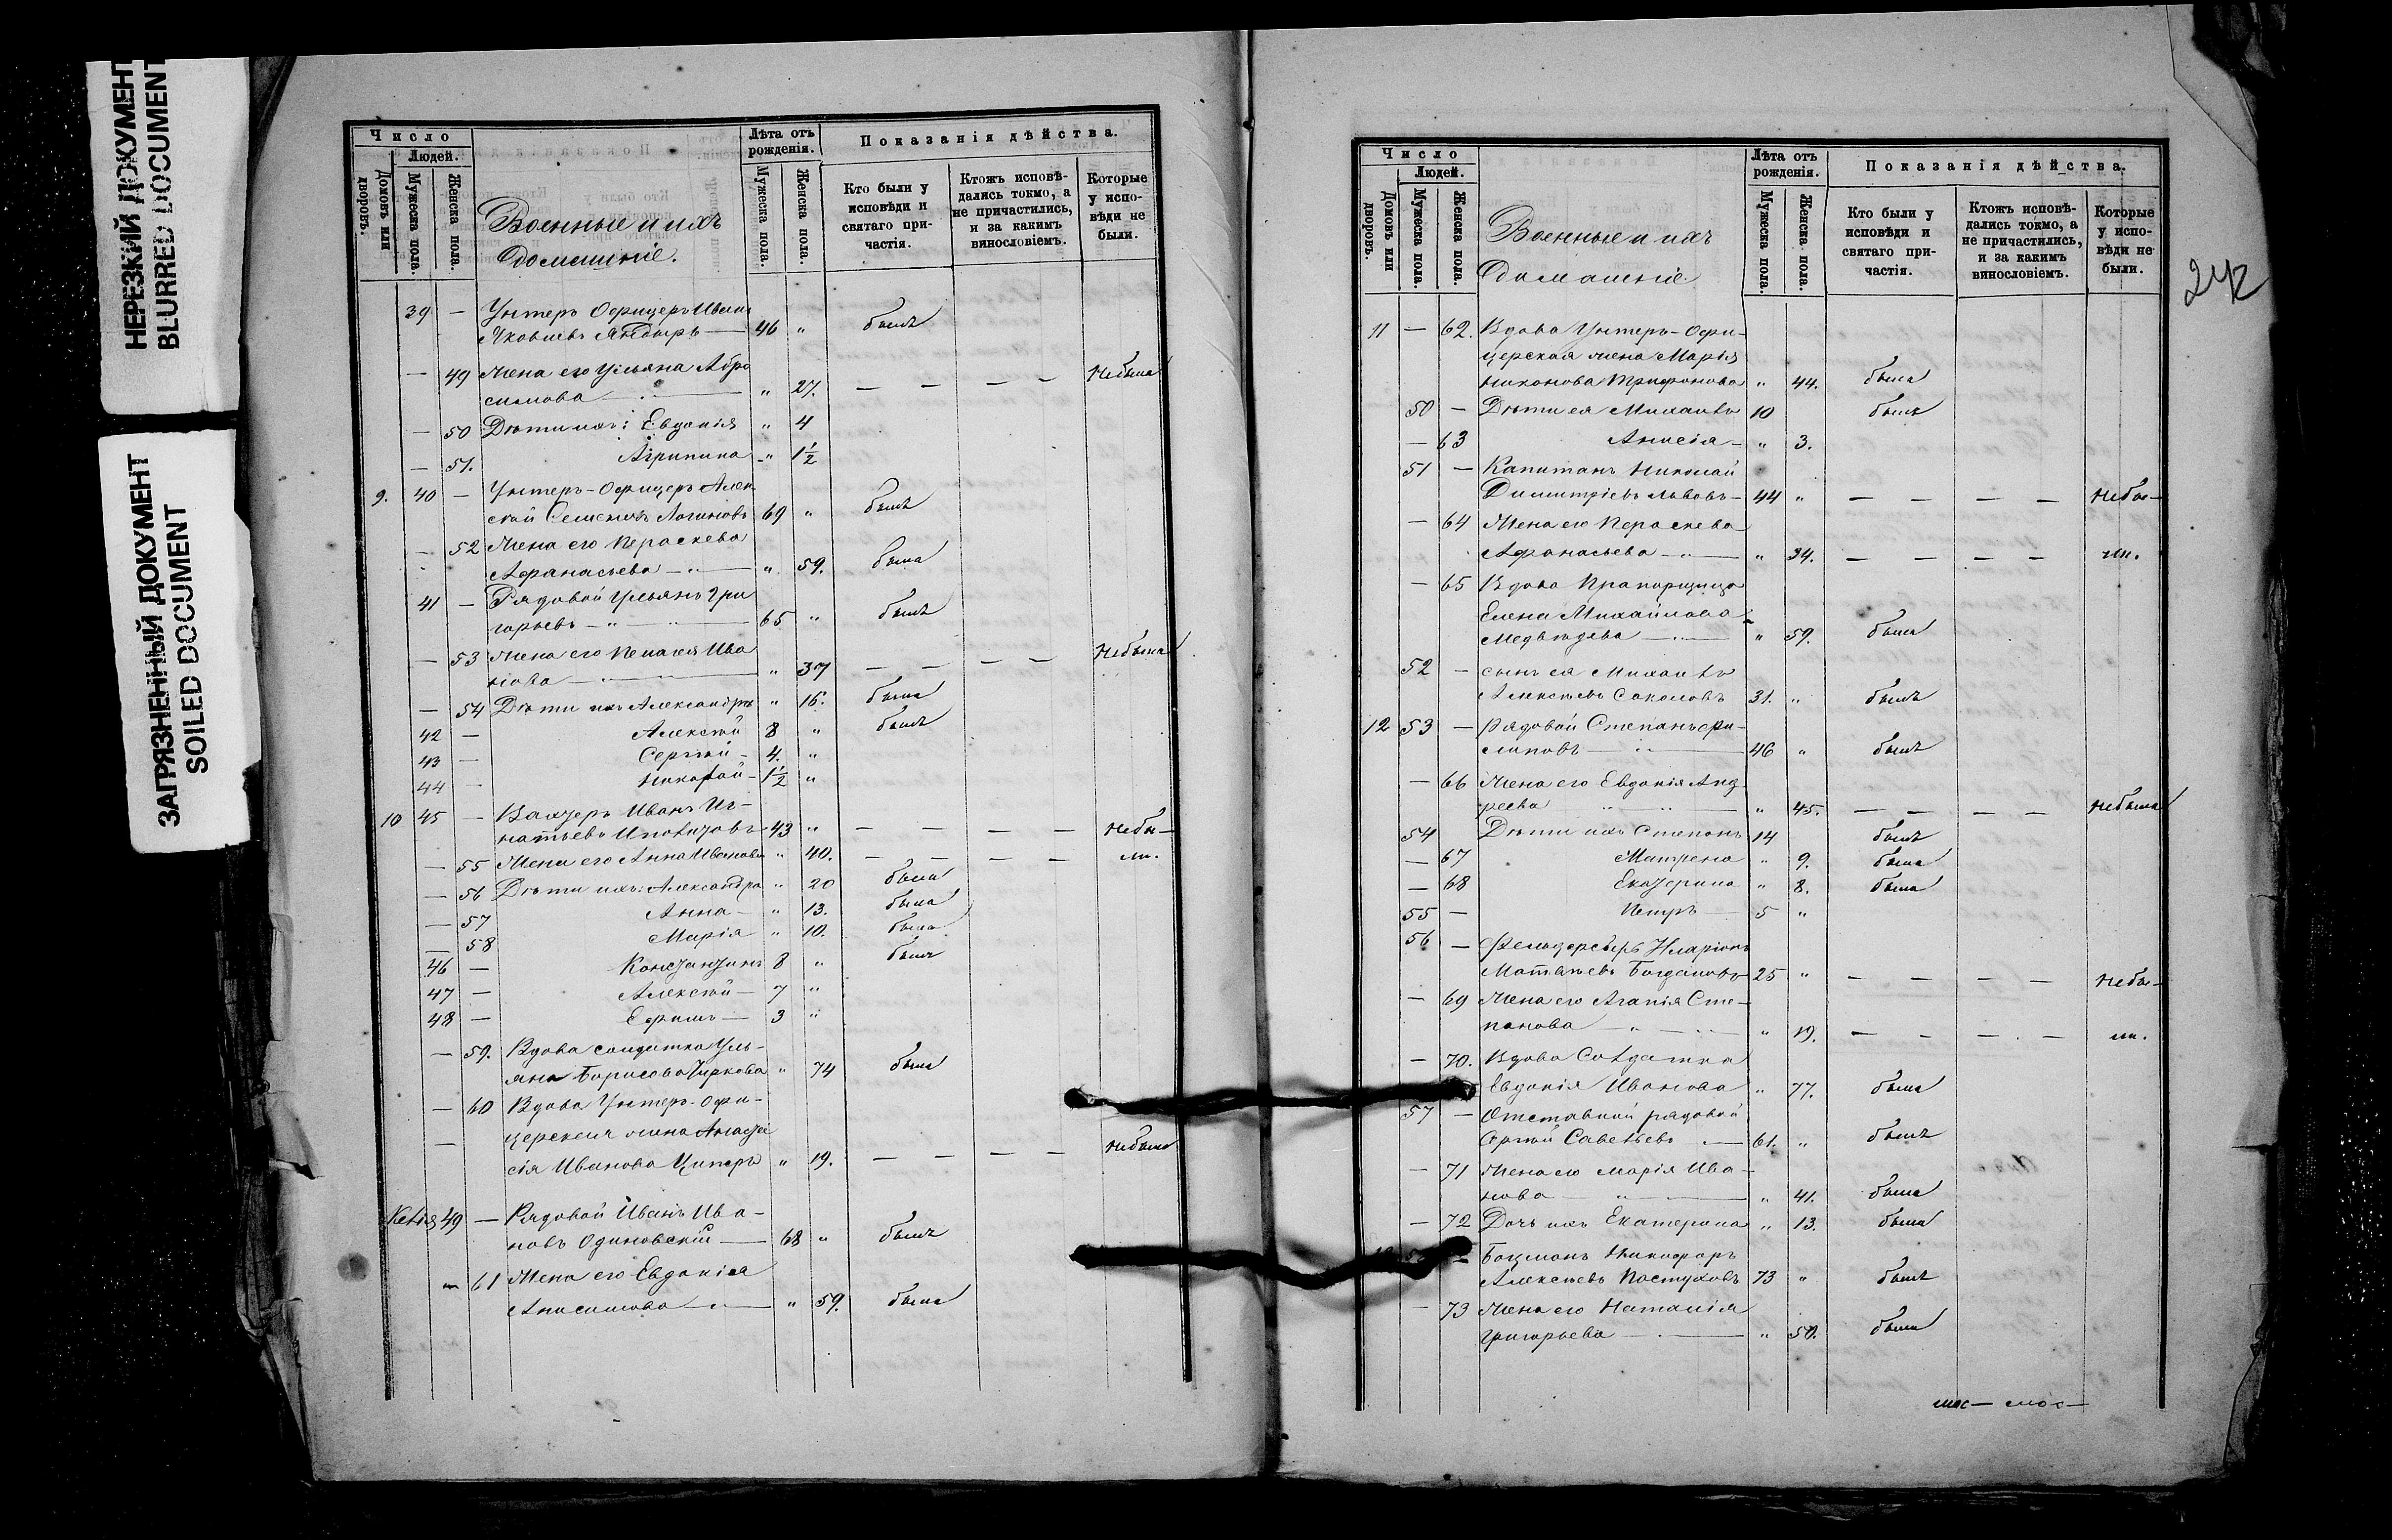 НЕРЕЗКИЙ ДОКУМЕНТ
BLURRED DOCUMENT
ЗАГРЯЗНЕННЫЙ ДОКУМЕНТ
SOILED DOCUMENT
Число
Людей.
Домовъ или дворовъ.
Мужеска пола.
Женска пола.
Военные и ихъ
домашніе.
Лѣта отъ рожденія.
Мужеска пола.
Женска пола.
Показанія дѣйства.
Кто были у исповѣди и святаго причастія.
Ктожъ исповѣдались токмо, а не причастились, и за какимъ винословіемъ.
Которые у исповѣди не были.
39 — Унтеръ Офицеръ Иванъ
Яковлевъ — 46 " былъ
— 49 Жена его Ульяна Абро
симова — " 27. — — — — Небыла
— 50 Дѣти ихъ: Евдокія " 4
— 51. Агрипина — " 1½
9. 40 — Унтеръ-Офицеръ Алек
сѣй Семеновъ Логиновъ 69 " былъ
— 52 Жена его Пераскева
Афанасьева — " — " 59. была
41 — Рядовой Ульянъ Гри
горьевъ — " — 65 " былъ
— 53 Жена его Пелагея Ива
нова — " 37 — — — — Небыла
— 54 Дѣти ихъ Александра " 16. была
42 — Алексѣй 8 " былъ
43 — Сергѣй — 4. "
44 — Николай — 1½ "
10 45 — Вахтеръ Иванъ Иг-
натьевъ — 43 " — — — — Небы-
— 55 Жена его Анна Иванова " 40. — — — — ли.
— 56 Дѣти ихъ: Александра " 20 была
— 57 Анна — " 13. была
— 58 Марія " 10. была
46 — Константинъ 8 " былъ
47 — Алексѣй — 7 "
48 — Ефимъ — 3 "
— 59. Вдова солдатка Уль-
яна Борисова Чиркова " 74 была
— 60 Вдова Унтеръ-Офи-
— церская жена Анаста
сія Иванова " 19. — — — — Небыла
49 — Рядовой Иванъ Ива-
новъ Одиновскій — 68 " былъ
— 61 Жена его Евдокія
Анисимова — " — " 59. была
Число
Людей.
Домовъ или дворовъ.
Мужеска пола.
Женска пола.
Военные и ихъ
домашніе
Лѣта отъ рожденія.
Мужеска пола.
Женска пола.
Показанія дѣйства.
Кто были у исповѣди и святаго причастія.
Ктожъ исповѣдались токмо, а не причастились, и за какимъ винословіемъ.
Которые у исповѣди не были.
242
11 — 62. Вдова Унтеръ-Офи-
церская жена Марія
Никонова Трифонова " 44. была
50 — Дѣти ея Михаилъ 10 былъ
— 63 Анисія — " 3.
51 — Капитанъ Николай
Димитріевъ Львовъ — 44 " — — — — Небы-
— 64 Жена его Пераскева
Афанасьева — " — " 34. — — — — ли.
— 65 Вдова Прапорщица
Елена Михайлова
Медвѣдева — " — " 59. была
52 — сынъ ея Михаилъ
Алексѣевъ Соколовъ 31. " былъ
12 53 — Рядовой Степанъ Фи-
липовъ — " — 46 " былъ
— 66 Жена его Евдокія Анд
реева " " — " 45. — — — — Небыла
54 Дѣти ихъ Степанъ 14 былъ
— 67 Матрена " 9. была
— 68 Екатерина " 8. была
55 — Петръ 5 "
56 — Фельдфебель Иларіонъ
Матвѣевъ Богдановъ — 25 " — — — — Небы-
— 69 Жена его Агапія Сте-
панова — " — " 19. — — — — ли.
— 70. Вдова Солдатка
Евдокія Иванова " 77. была
57 — Отставной рядовой
Сергѣй Савельевъ — 61. " былъ
— 71 Жена его Марія Ива-
нова — " — " 41. была
— 72 Дочь ихъ Екатерина " 13. была
Боцманъ Никифоръ
Алексѣевъ Пастуховъ 73 " былъ
— 73 Жена его Наталія
Григорьева — " 50. была